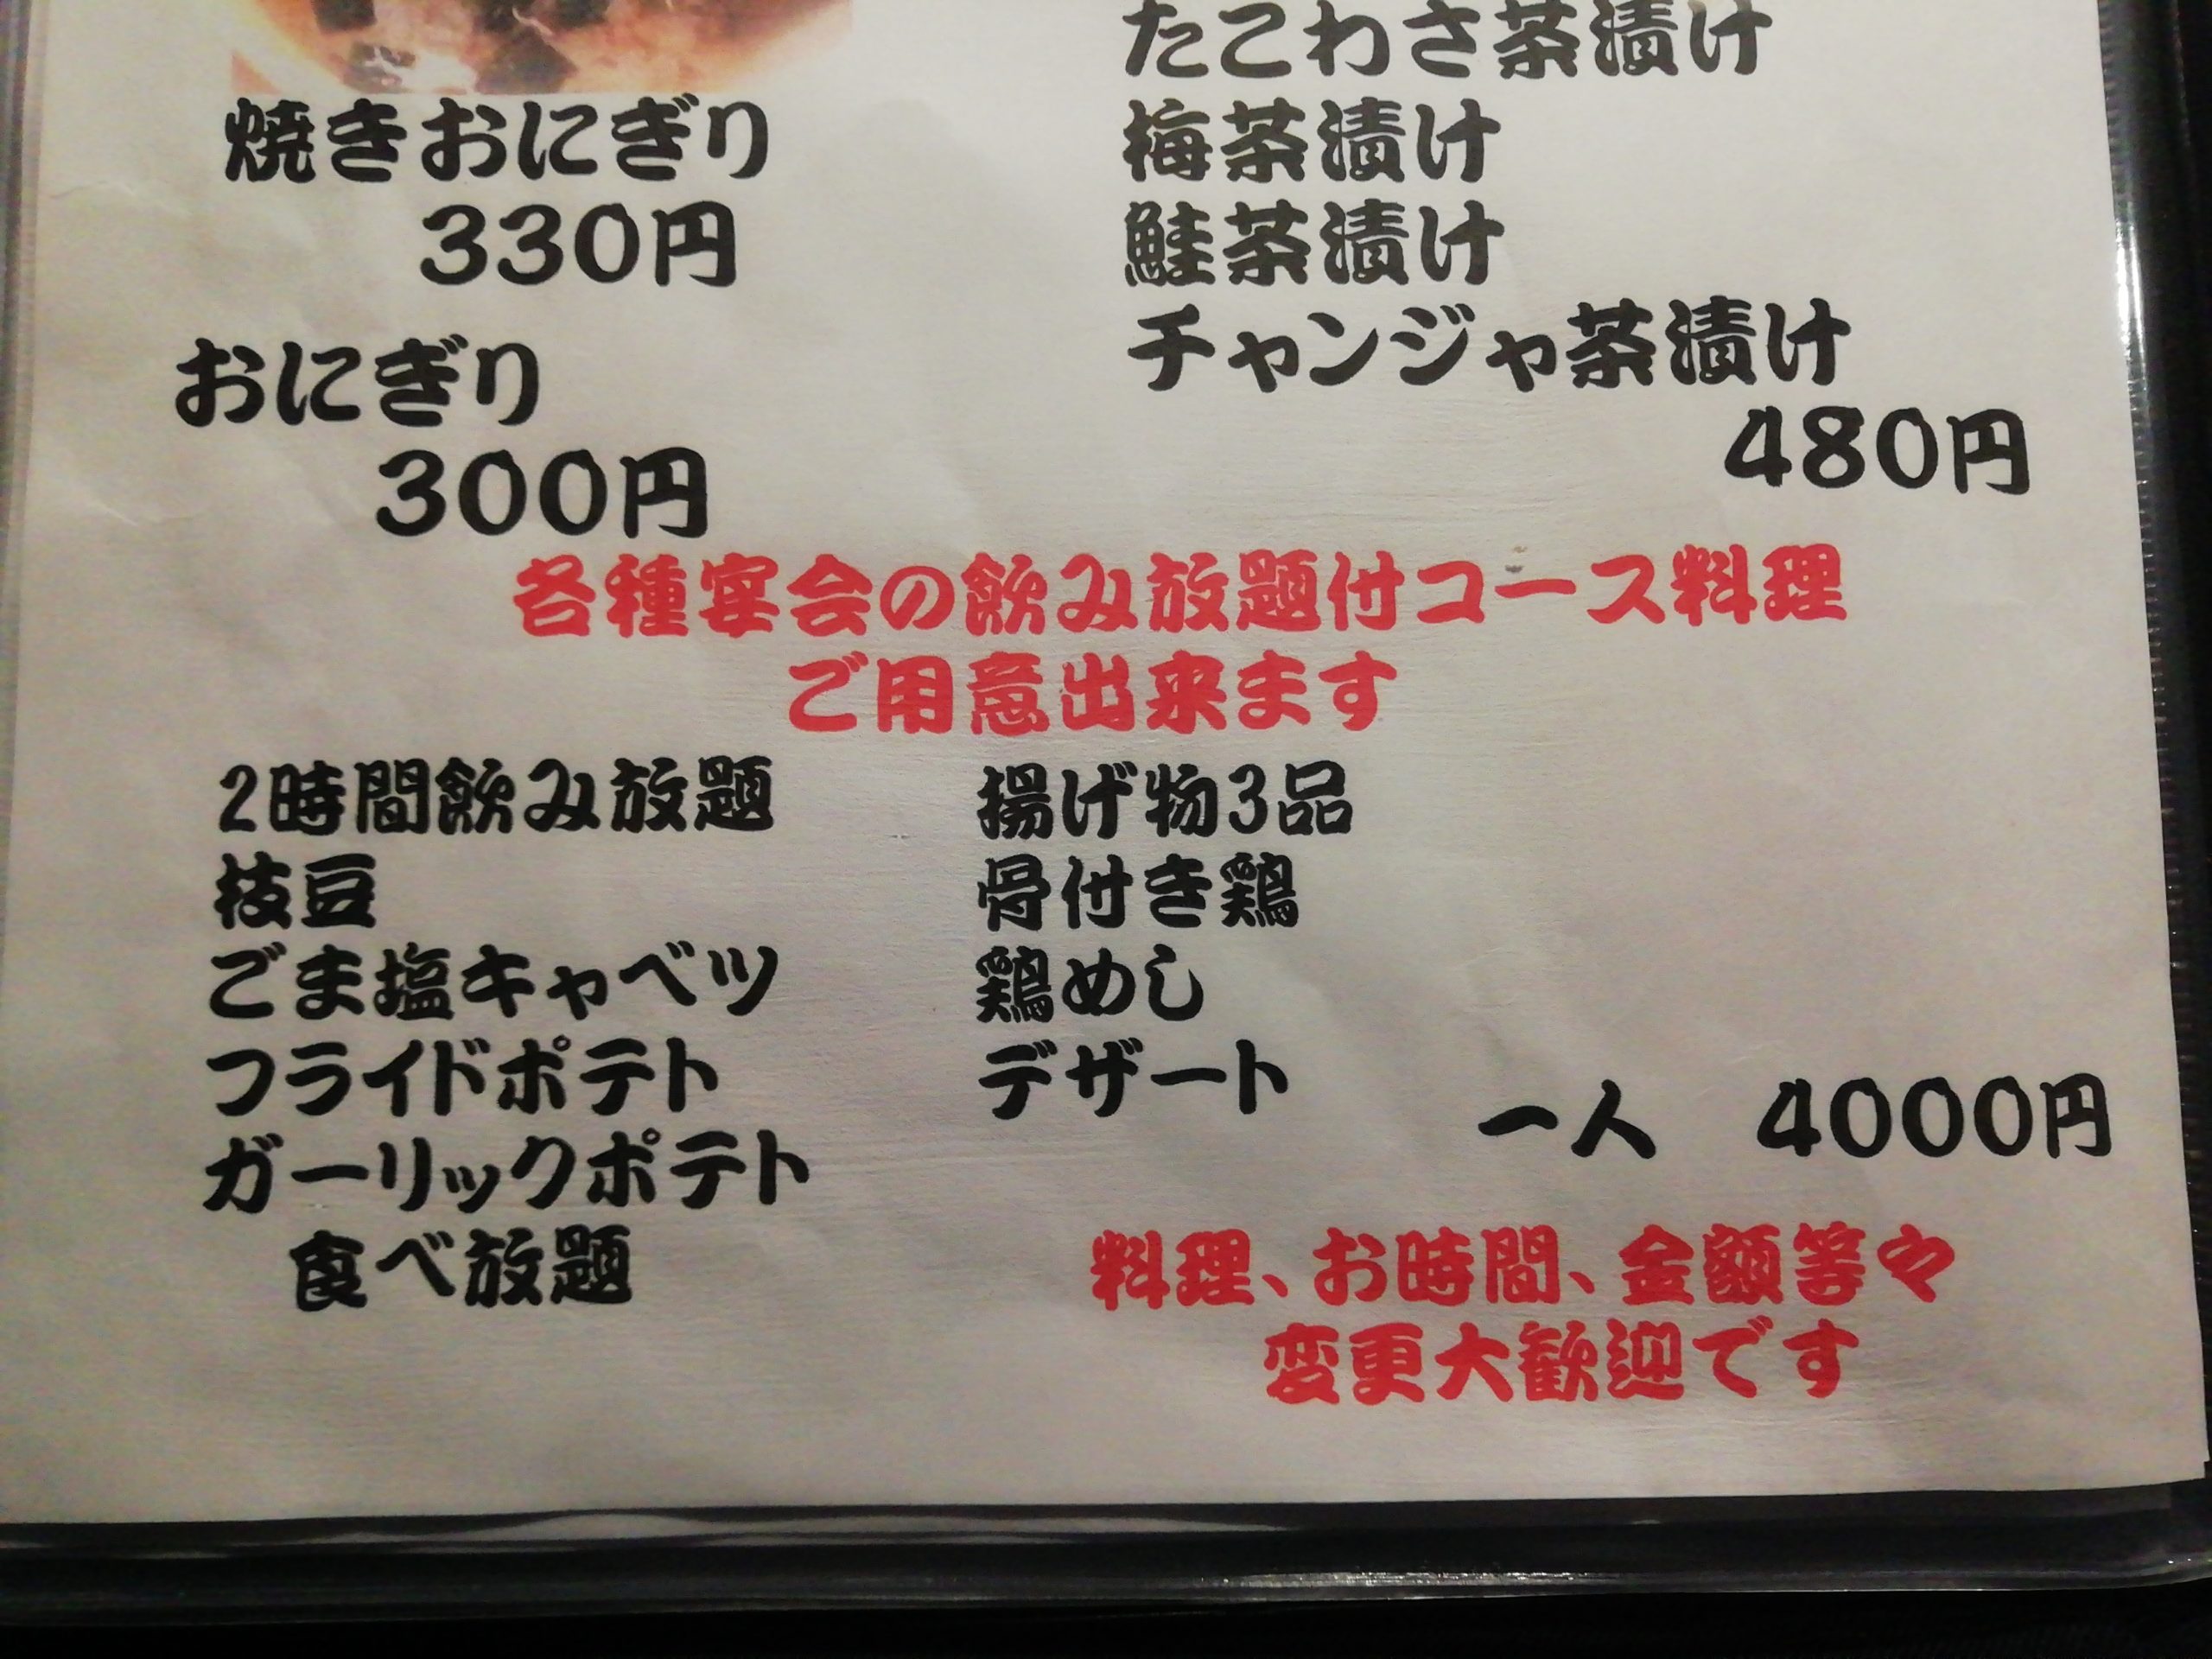 焼きおにぎり
330円
おにぎり
300円
たこわさ茶漬け
梅茶漬け
鮭茶漬け
チャンジャ茶漬け
480円
各種宴会の飲み放題付コース料理
ご用意出来ます
2時間飲み放題
枝豆
ごま塩キャベツ
フライドポテト
ガーリックポテト
食べ放題
揚げ物3品
骨付き鶏
鶏めし
デザート
一人 4000円
料理、お時間、金額等々
変更大歓迎です